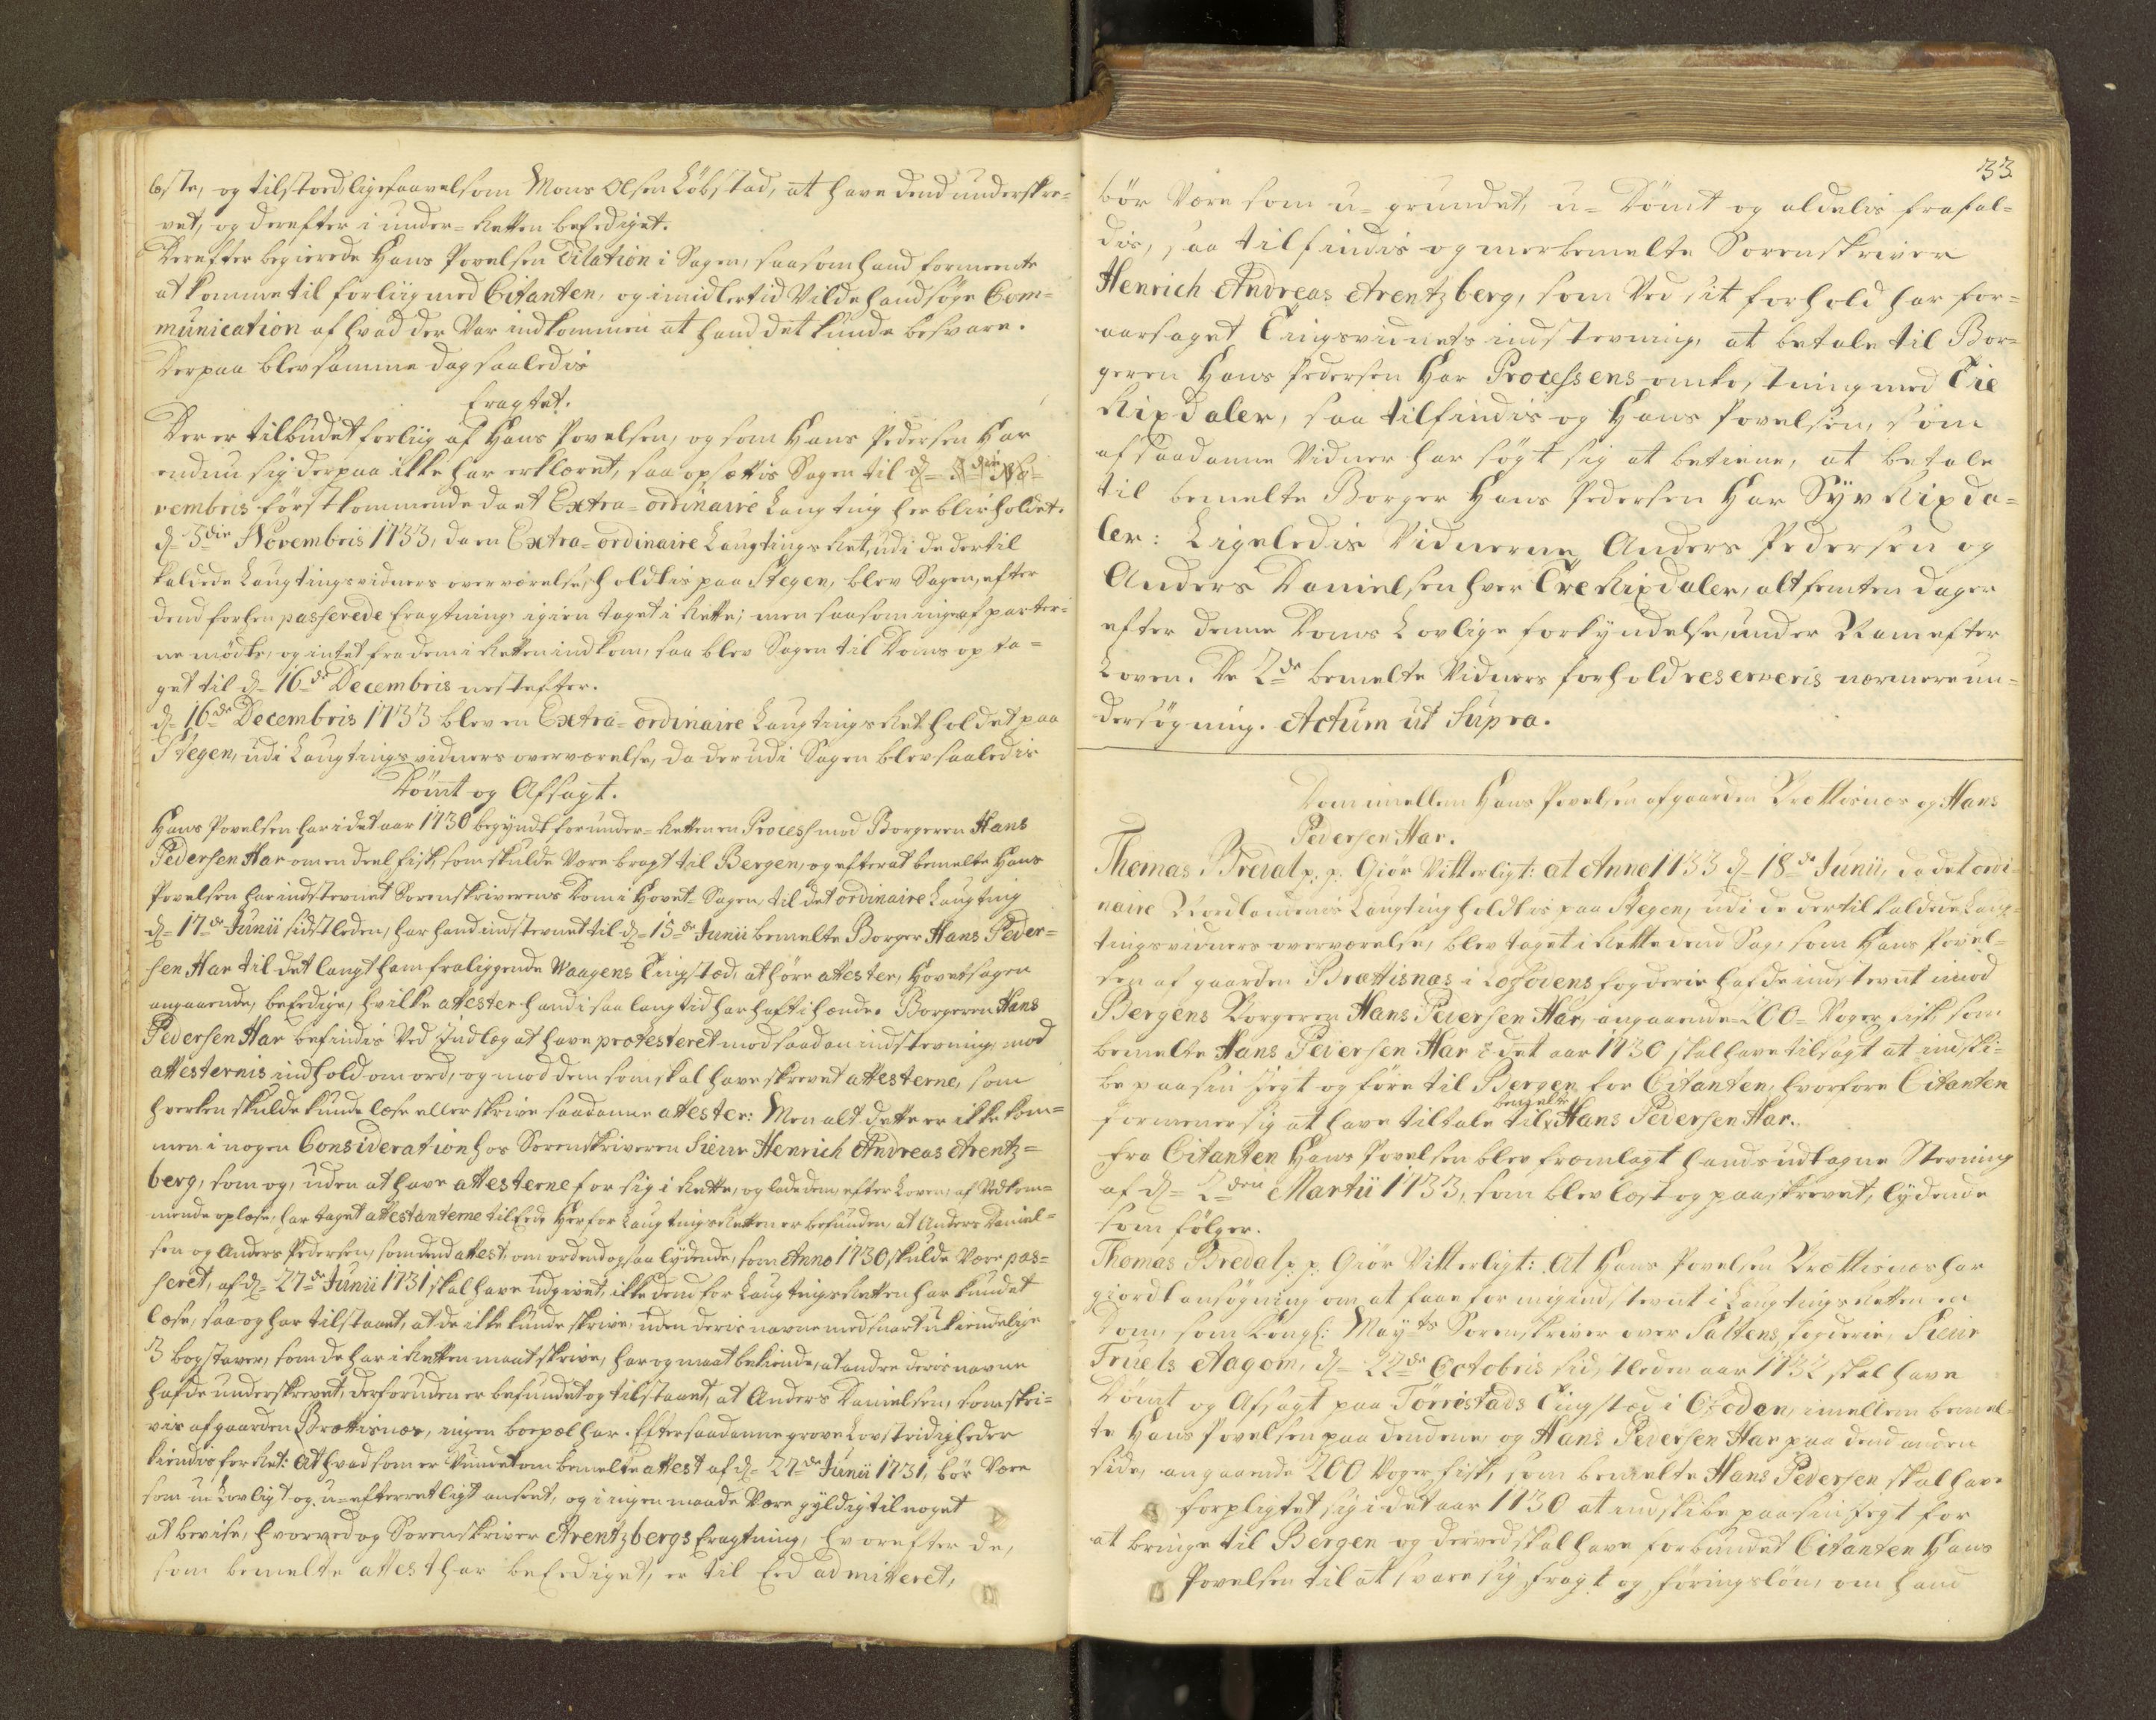 løste, og tilstoed ligesaavelsom Mons Olsen Løbstad, at have dend underskre-
vet, og derefter i under-Retten beEdiget.
Derefter begierede Hans Povelsen Dilation i Sagen, saasom hand formeente
at komme til forliig med Citanten, og imidlertid Vilde hand søge Com-
munication af hvad der Var indkommen at hand det kunde besvare.
Derpaa blev samme dag saaledis
Eragtet.
Der er tilbudet forliig af Hans Povelsen, og som Hans Pedersen Har
endnu sig derpaa ikke har erklæret, saa opsættis Sagen til d= 5die No-
vembris førstkommende da et Extra-ordinaire Laugting her blir holdet.
d= 5die Novembris 1733, da en Extra-ordinaire Laugtings Ret, udi de dertil
kaldede Laugtingsvidners overværelse, holdtis paa Stegen, blev Sagen, efter
dend forhen passerede Eragtning igien taget i Rette; men saasom ingen af parter-
ne mødte, og intet fra dem i Retten indkom, saa blev Sagen til Doms opta-
get til d= 16de Decembris nestefter.
d= 16de Decembris 1733 blev en Extra-ordinaire Laugtings Ret holdet paa
Stegen, udi Laugtingsvidners overværelse, da der udi Sagen blev saaledis
Dømt og Afsagt.
Hans Povelsen har i det aar 1730 begyndt for under-Retten en Process mod Borgeren Hans
Pedersen Har om en deel fisk, som skulde Være bragt til Bergen, og efter at bemelte Hans
Povelsen har indstevnet Sorenskriverens Dom i Hovet-Sagen, til det ordinaire Laugting
d= 17de Junii sidstleden, har hand indstevnet til d= 15de Junii bemelte Borger Hans Peder-
sen Har til det langt ham fraliggende Waagens Tingstæd, at høre attester, Hovetsagen
angaaende, beEdige, hvilke attester hand i saa lang tid har haft i hænde. Borgeren Hans
Pedersen Har befindis Ved Indlæg at have protesteret mod saadan indstevning, mod
attesternis indhold om ord, og mod dem som skal have skrevet attesterne, som
hverken skulde kunde læse eller skrive saadanne attester: Men alt dette er ikke kom-
men i nogen Consideration hos Sorenskriveren Sieur Henrich Andreas Arentz-
berg, som og, uden at have attesterne for sig i Rette, og lade dem, efter Loven, af Vedkom-
mende oplæse, har taget attestanterne til Eed. Her for Laugtings Retten er befunden, at Anders Daniel-
sen og Anders Pedersen, som dend attest, om ordend ogsaa lydende, som Anno 1730 skulde Være pas-
seret, af d= 27de Junii 1731 skal have udgivet, ikke dend for Laugtings Retten har kundet
læse, saa og har tilstaaet, at de ikke kunde skrive, uden deris navne med snart ukiendelige
3 bogstaver, som de har i Retten maat skrive, har og maat bekiende, at andre deris navne
hafde underskrevet, derforuden er befundet og tilstaaet, at Anders Danielsen, som skri-
vis af gaarden Brættisnæs, ingen boepæl har. Efter saadanne grove Lovstridigheder
kiendis for Ret: At hvad som er Vundet om bemelte attest af d= 27de Junii 1731, bør Være
som u-Lovligt og u-efterretligt anseet, og i ingen maade Være gyldig til noget
at bevise, hvorved og Sorenskriver Arentzbergs Eragtning, hvorefter de,
som bemelte attest har beEdiget, er til Eed admitteret,
33.
bør Være som u-grundet, u-Dømt og aldelis frafal-
dis, saa tilfindis og merbemelte Sorenskriver
Henrich Andreas Arentzberg, som Ved sit forhold har for-
aarsaget Tingsvidnets indstevning, at betale til Bor-
geren Hans Pedersen Har Processens omkostning med Tie
Rixdaler, saa tilfindis og Hans Povelsen, som
af saadanne Vidner har søgt sig at betiene, at betale
til bemelte Borger Hans Pedersen Har Syv Rixda-
ler: Ligeledis Vidnerne Anders Pedersen og
Anders Danielsen hver Tre Rixdaler, alt femten dager
efter denne Doms Lovlige forkyndelse, under Nam efter
Loven. De 2de bemelte Vidners forhold reserveris nærmere un-
dersøgning. Actum ut Supra.
Dom imellem Hans Povelsen af gaarden Brættisnæs og Hans
Pedersen Har.
Thomas Bredal p. p. Giør Vitterligt: at Anno 1733 d= 18de Junii, da det ordi-
naire Nordlandenis Laugting holdtis paa Stegen, udi de dertil kaldede Laug-
tingsvidners overværelse, blev taget i Rette dend Sag, som Hans Povel-
sen af gaarden Brættisnæs i Lofodens fogderie hafde indstevnt imod
Bergens Borgeren Hans Pedersen Har, angaaende 200 Voger fisk som
bemelte Hans Pedersen Har i det aar 1730 skal have tilsagt at indski-
be paa sin Jegt og føre til Bergen for Citanten, hvorfore Citanten
formener sig at have tiltale til bemelte Hans Pedersen Har.
Fra Citanten Hans Povelsen blev fremlagt hands udtagne Stevning
af d= 2den Martii 1733, som blev læst og paaskrevet, lydende
som følger.
Thomas Bredal p. p. Giør Vitterligt: At Hans Povelsen Brættisnæs har
giordt ansøgning om at faae for mig indstevnt i Laugtings Retten en
Dom, som Kongl: Mayts Sorenskriver over Saltens fogderie, Sieur
Truels Aagom, d= 22de Octobris sidstleden aar 1732 skal have
Dømt og Afsagt paa Tørrestads Tingstæd i Ofoden, imellem bemel-
te Hans Povelsen paa dend ene og Hans Pedersen Har paa dend anden
side, angaaende 200 Voger fisk, som bemelte Hans Pedersen skal have
forpligtet sig i det aar 1730 at indskibe paa sin Jegt for
at bringe til Bergen og derved skal have forbundet Citanten Hans
Povelsen til at svare sig fragt og føringsløn, om hand